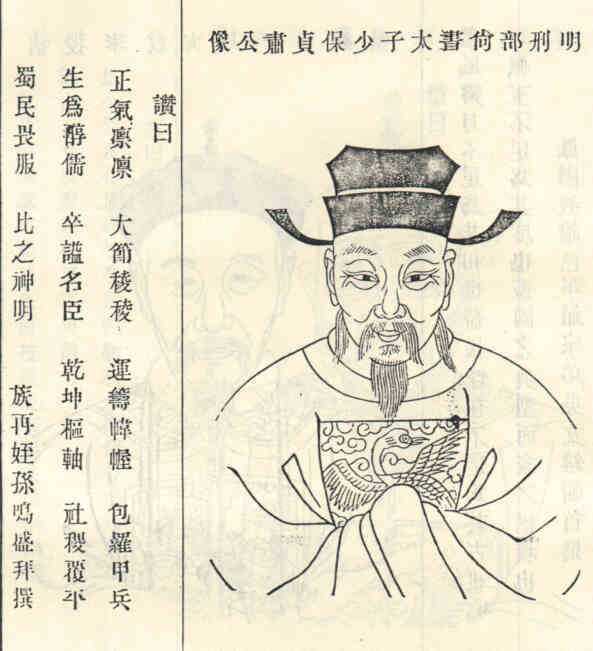 明刑部尚書太子少保貞肅公像
讚曰
正氣凛凛 大節稜稜 運籌幃幄 包羅甲兵
生爲醇儒 卒謚名臣 乾坤樞軸 社稷覆平
蜀民畏服 比之神明 族再姪孫鳴盛拜撰